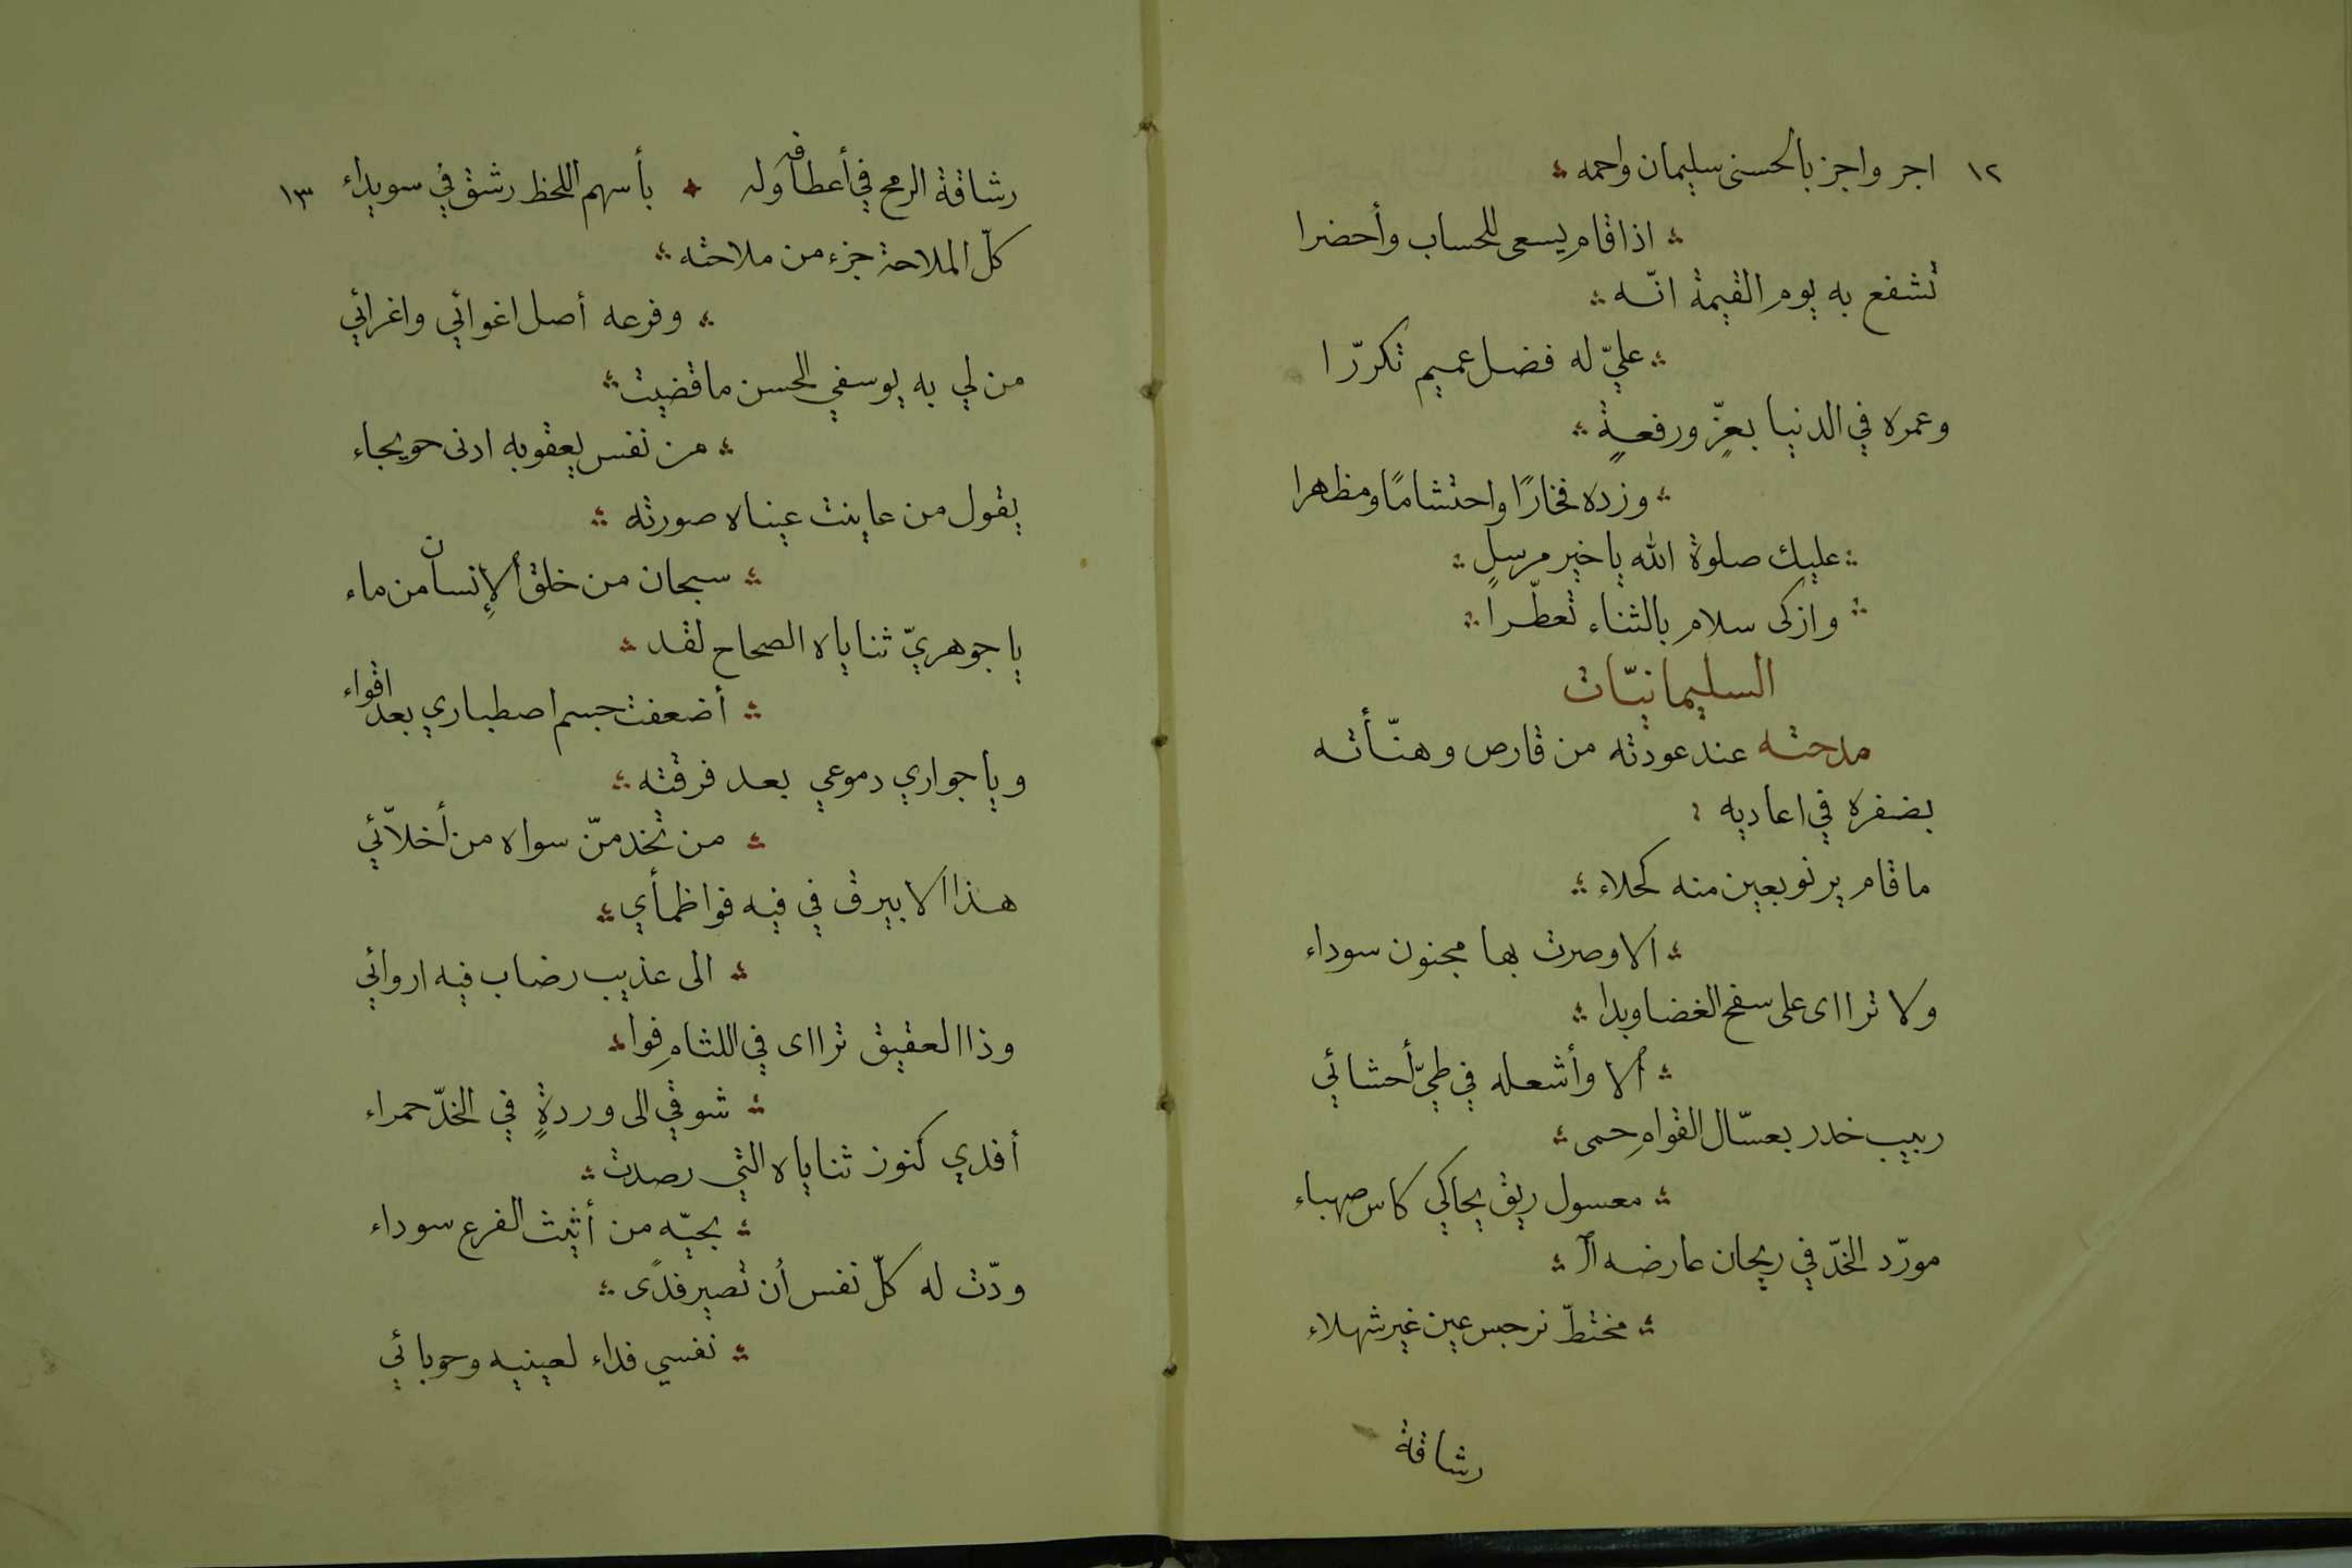 ١٢ اجر واجز بالحسنى سليمان واحمه
اذا قام يسعى للحساب وأحضرا
تشفع به يوم القيمة انّه
عليّ له فضل عميم تكرّرا
وعمره في الدنيا بعزٍّ ورفعةٍ
وزده فخارًا واحتشامًا ومظهرا
عليك صلوة الله يا خير مرسلٍ
وازكى سلام بالثناء تعطّرا
السليمانيّات
مدحته عند عودته من قارص وهنّأته
بضفره في اعاديه
ما قام يرنو بعين منه كحلاء
الا وصرت بها مجنون سوداء
ولا تراای على سفح الغضا وبدا
ألا وأشعله في طيّ أحشائي
ربيب خدر بعسّال القواهِ حمى
معسول ريق يحاكي كاس صهباء
مورّد الخدّ في ريحان عارضه ال
مختطّ نرجس عين غير شهلاء
رشاقة
رشاقة الرمح في أعطافه وله بأسهم اللحظ رشق في سويداء ١٣
كلّ الملاحة جزء من ملاحته
وفرعه أصل اغوائي واغرائي
من لي به يوسفي الحسن ما قضيت
من نفس يعقوبه ادنى حويجاء
يقول من عاينت عيناه صورته
سبحان من خلق الإنسان من ماء
يا جوهريّ ثناياه الصحاح لقد
أضعفت جسم اصطباري بعد اقواء
ويا جواري دموعي بعد فرقته
من تخدمنّ سواه من أخلاّئي
هذا الابيرق في فيه فوا ظمأي
الى عذيب رضاب فيه اروائي
وذا العقيق تراای في اللثاهِ فوا
شوقي الى وردةٍ في الخدّ حمراء
أفدي كنوز ثناياه التي رصدت
بحيّه من أثيث الفرع سوداء
ودّت له كلّ نفس أن تصير فدًى
نفسي فداء لعينيه وحوبائي